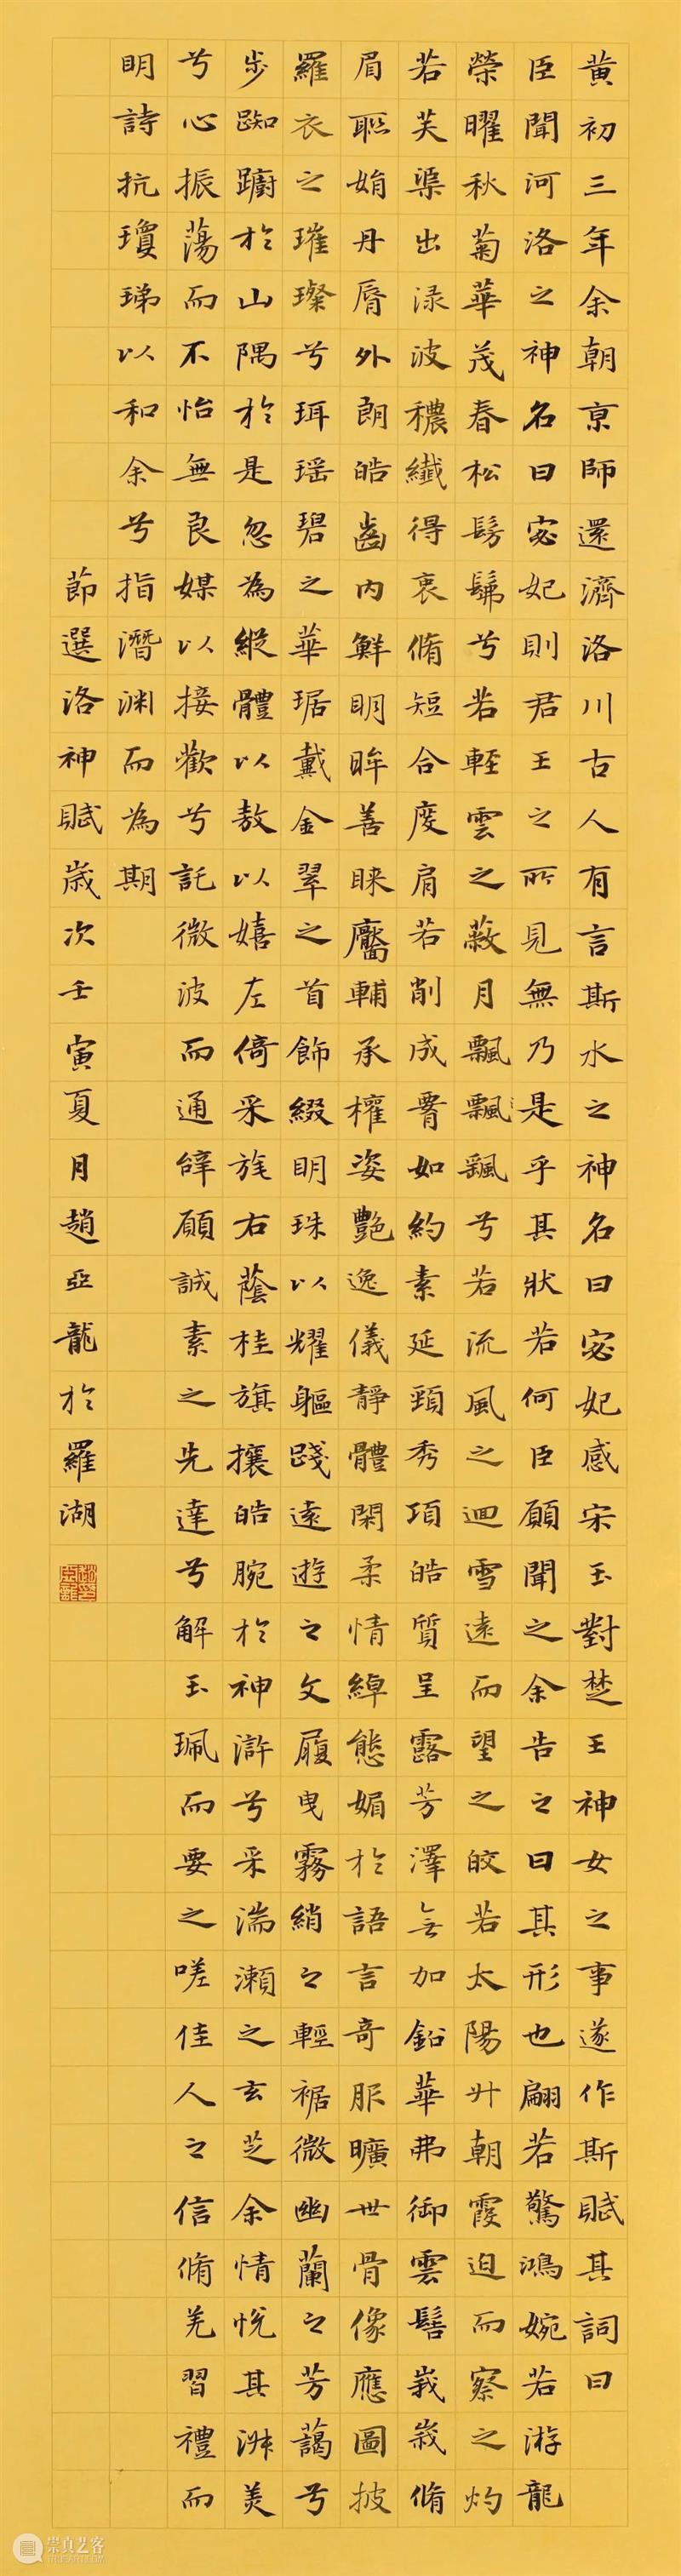 黄初三年余朝京師還濟洛川古人有言斯水之神名曰宓妃感宋玉對楚王神女之事遂作斯賦其詞曰
臣聞河洛之神名曰宓妃則君王之所見無乃是乎其狀若何臣願聞之余告之曰其形也翩若驚鴻婉若游龍
榮曜秋菊華茂春松髣髴兮若輕雲之蔽月飄飄飖兮若流風之迴雪遠而望之皎若太陽升朝霞迫而察之灼
若芙渠出淥波穠纖得衷脩短合度肩若削成腰如約素延頸秀項皓質呈露芳澤無加鉛華弗御雲髻峩峩脩
眉聯娟丹脣外朗皓齒內鮮明眸善睞靨輔承權姿艷逸儀靜體閑柔情綽態媚於語言奇服曠世骨像應圖披
羅衣之璀璨兮珥瑤碧之華琚戴金翠之首飾綴明珠以耀軀踐遠遊之文履曳霧綃之輕裾微幽蘭之芳藹兮
步踟躕於山隅於是忽為縱體以敖以嬉左倚采旄右蔭桂旗攘皓腕於神滸兮采湍瀨之玄芝余情悅其淑美
兮心振蕩而不怡無良媒以接歡兮託微波而通辭願誠素之先達兮解玉珮而要之嗟佳人之信脩羌習禮而
明詩抗瓊珶以和余兮指潛淵而為期
節選洛神賦歲次壬寅夏月趙亞龍於羅湖
崇真艺客